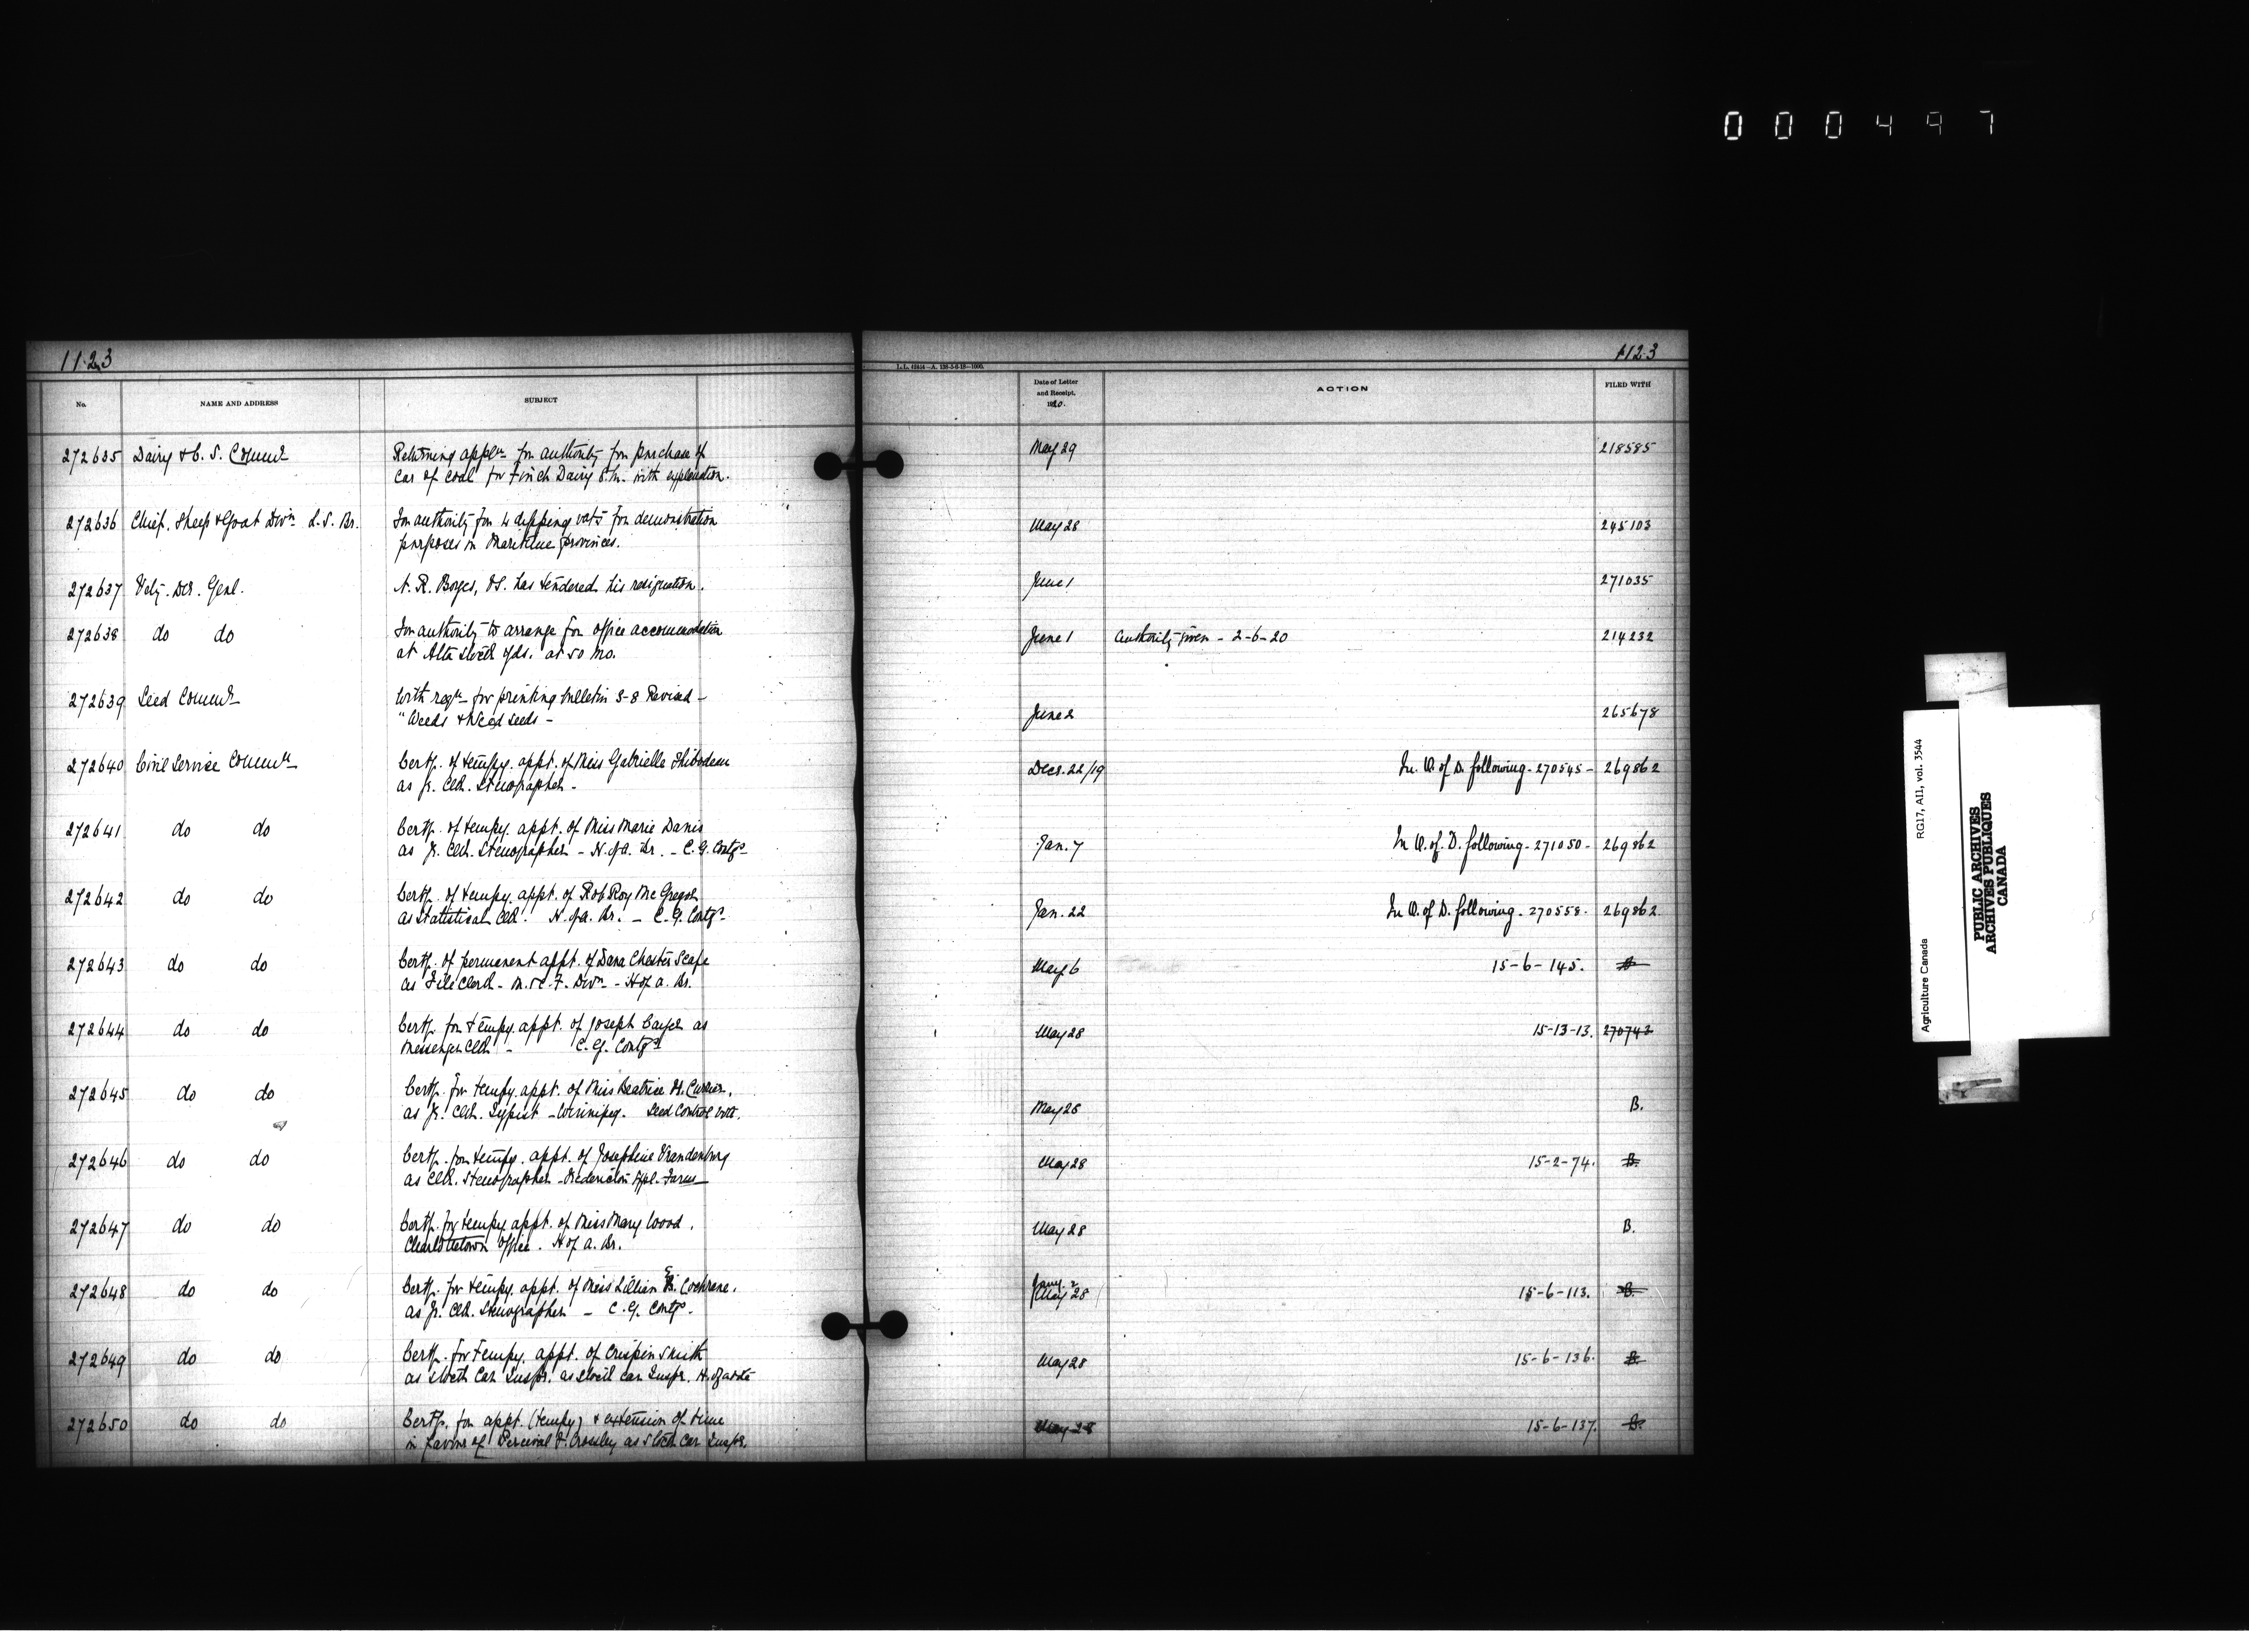 000497
1123
1123
L.L. 61414—A. 138-5-6-19—1000.
No. NAME AND ADDRESS SUBJECT Date of Letter and Receipt, 1920. ACTION FILED WITH
272635 Dairy & C. S. Commr Returning appln for authority for purchase of May 29 218585
car of coal for Finch Dairy Stn. with explanation.
272636 Chief, Sheep & Goat Divn L. S. Br. For authority for 4 dipping vats for demonstration May 28 245103
purposes in Maritime provinces.
272637 Vety. Dir. Genl. N. R. Borges, has tendered his resignation. June 1 271035
272638 do do For authority to arrange for office accommodation June 1 Authority given - 2-6-20 214232
at Alta Stock yds. at 50 mo.
272639 Seed Commr With reqn for printing bulletin S-8 Revised -
"Weeds & Weed seeds - June 2 265678
272640 Civil Service Commn Certf. of tempy. appt. of Miss Gabrielle Thibodeau Decr. 22/19 In W. of D. following - 270545 - 269862
as Jr. Clk. Stenographer -
272641 do do Certf. of tempy. appt. of Miss Marie Danis
as Jr. Clk. Stenographer - H. of A. Br. - C. G. Contgs Jan. 7 In W. of D. following - 271050 - 269862
272642 do do Certf. of tempy. appt. of Rob Roy McGregor
as Statistical Clk. H. of A. Br. - C. G. Contgs Jan. 22 In W. of D. following - 270558 - 269862
272643 do do Certf. of permanent appt. of Dana Chester Scafe May 6 15-6-145. B
as File Clerk - M. & C. F. Divn - H of A. Br.
272644 do do Certf. for tempy. appt. of Joseph as May 28 15-13-13. 270743
Messenger Clk - C. G. Contgs
272645 do do Certf. for tempy. appt. of Miss Beatrice H. Currier,
as Jr. Clk. Typist - Winnipeg. Seed Control May 28 B.
272646 do do Certf. for tempy. appt. of Josephine Vrandenburg May 28 15-2-74. B.
as Clk. Stenographer - Fredericton Expl. Farm
272647 do do Certf. for tempy appt. of Miss Mary Wood, May 28 B.
Charlottetown office. H of A. Br.
272648 do do Certf. for tempy. appt. of Miss Lillian E. Cochrane, May 28 15-6-113. B.
as Jr. Clk. Stenographer - C. G. Contgs.
272649 do do Certf. for Tempy. appt. of Crispin Smith May 28 15-6-136. B.
as Stock Car Inspr. as Stock car Inspr. H. of A.
272650 do do Certf. for appt. (tempy) & extension of time May 28 15-6-137. B.
in favour of Percival F. Crossley as Stock Car Inspr.
Agriculture Canada RG17, AII, vol. 3544
PUBLIC ARCHIVES
ARCHIVES PUBLIQUES
CANADA